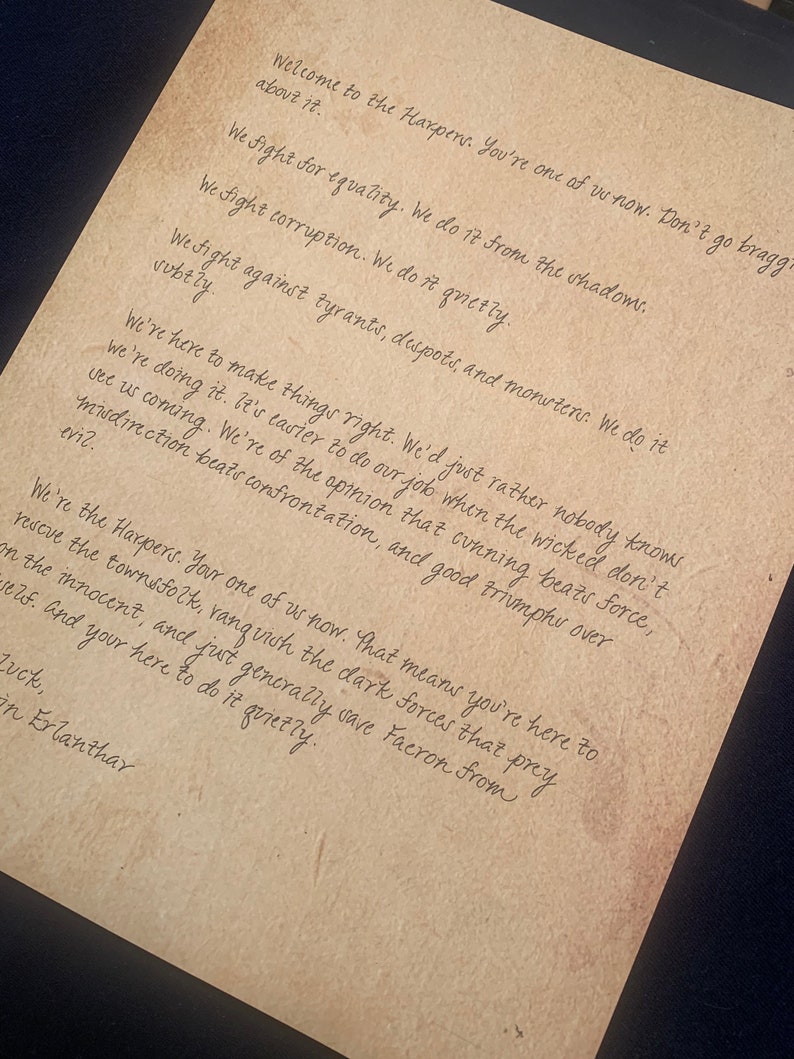 Welcome to the Harpers. You're one of us now. Don't go braggi
about it.
We fight for equality. We do it from the shadows.
We fight corruption. We do it quietly.
We fight against tyrants, despots, and monsters. We do it
subtly.
We're here to make things right. We'd just rather nobody knows
we're doing it. It's easier to do our job when the wicked don't
see us coming. We're of the opinion that cunning beats force,
misdirection beats confrontation, and good triumphs over
evil.
We're the Harpers. Your one of us now. That means you're here to
rescue the townsfolk, vanquish the dark forces that prey
on the innocent, and just generally save Faeron from
self. And your here to do it quietly.
Luck,
in Erlanthar